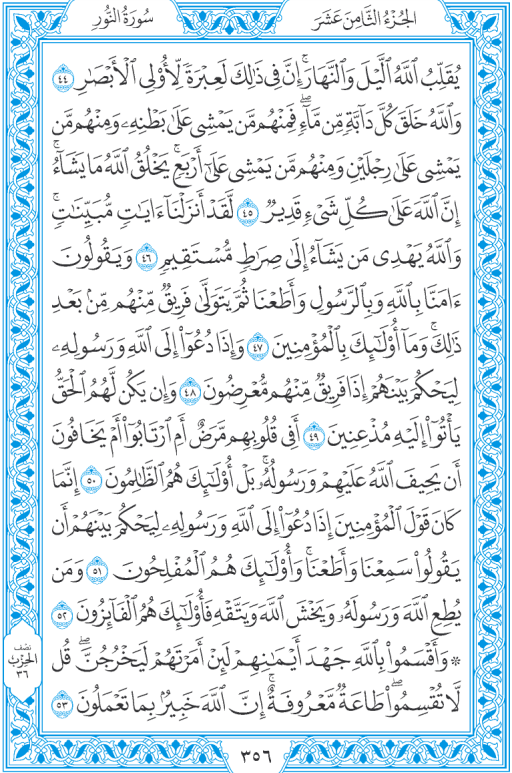 الجُزْءُ الثَّامِنَ عَشَرَ
سُورَةُ النُّورِ
يُقَلِّبُ ٱللَّهُ ٱلَّيْلَ وَٱلنَّهَارَۚ إِنَّ فِى ذَٰلِكَ لَعِبْرَةً لِّأُو۟لِى ٱلْأَبْصَٰرِ ٤٤
وَٱللَّهُ خَلَقَ كُلَّ دَآبَّةٍ مِّن مَّآءٍۖ فَمِنْهُم مَّن يَمْشِى عَلَىٰ بَطْنِهِۦ وَمِنْهُم مَّن
يَمْشِى عَلَىٰ رِجْلَيْنِ وَمِنْهُم مَّن يَمْشِى عَلَىٰٓ أَرْبَعٍۚ يَخْلُقُ ٱللَّهُ مَا يَشَآءُۚ
إِنَّ ٱللَّهَ عَلَىٰ كُلِّ شَىْءٍ قَدِيرٌ ٤٥ لَّقَدْ أَنزَلْنَآ ءَايَٰتٍ مُّبَيِّنَٰتٍۚ
وَٱللَّهُ يَهْدِى مَن يَشَآءُ إِلَىٰ صِرَٰطٍ مُّسْتَقِيمٍ ٤٦ وَيَقُولُونَ
ءَامَنَّا بِٱللَّهِ وَبِٱلرَّسُولِ وَأَطَعْنَا ثُمَّ يَتَوَلَّىٰ فَرِيقٌ مِّنْهُم مِّنۢ بَعْدِ
ذَٰلِكَۚ وَمَآ أُو۟لَٰٓئِكَ بِٱلْمُؤْمِنِينَ ٤٧ وَإِذَا دُعُوٓا۟ إِلَى ٱللَّهِ وَرَسُولِهِۦ
لِيَحْكُمَ بَيْنَهُمْ إِذَا فَرِيقٌ مِّنْهُم مُّعْرِضُونَ ٤٨ وَإِن يَكُن لَّهُمُ ٱلْحَقُّ
يَأْتُوٓا۟ إِلَيْهِ مُذْعِنِينَ ٤٩ أَفِى قُلُوبِهِم مَّرَضٌ أَمِ ٱرْتَابُوٓا۟ أَمْ يَخَافُونَ
أَن يَحِيفَ ٱللَّهُ عَلَيْهِمْ وَرَسُولُهُۥۚ بَلْ أُو۟لَٰٓئِكَ هُمُ ٱلظَّٰلِمُونَ ٥٠ إِنَّمَا
كَانَ قَوْلَ ٱلْمُؤْمِنِينَ إِذَا دُعُوٓا۟ إِلَى ٱللَّهِ وَرَسُولِهِۦ لِيَحْكُمَ بَيْنَهُمْ أَن
يَقُولُوا۟ سَمِعْنَا وَأَطَعْنَاۚ وَأُو۟لَٰٓئِكَ هُمُ ٱلْمُفْلِحُونَ ٥١ وَمَن
يُطِعِ ٱللَّهَ وَرَسُولَهُۥ وَيَخْشَ ٱللَّهَ وَيَتَّقْهِ فَأُو۟لَٰٓئِكَ هُمُ ٱلْفَآئِزُونَ ٥٢
۞ وَأَقْسَمُوا۟ بِٱللَّهِ جَهْدَ أَيْمَٰنِهِمْ لَئِنْ أَمَرْتَهُمْ لَيَخْرُجُنَّۖ قُل
لَّا تُقْسِمُوا۟ۖ طَاعَةٌ مَّعْرُوفَةٌۚ إِنَّ ٱللَّهَ خَبِيرٌۢ بِمَا تَعْمَلُونَ ٥٣
نصف
الحزب
٣٦
٣٥٦